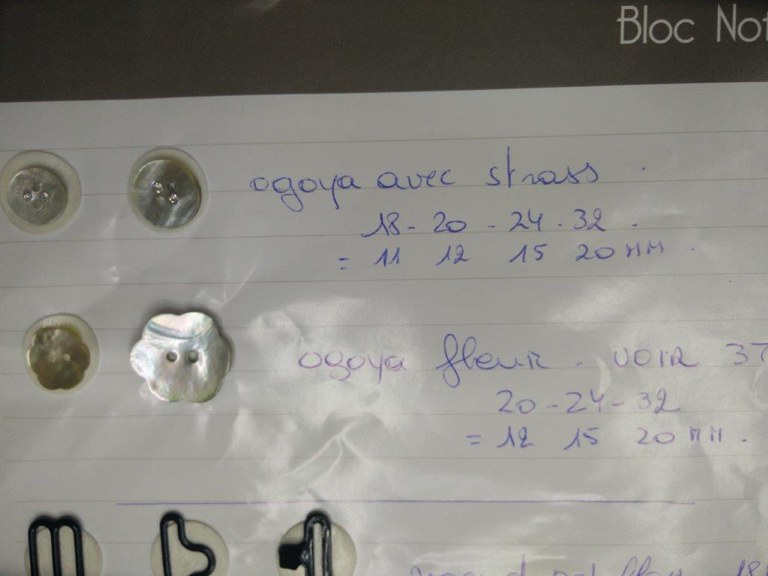 Bloc Not
ogoya avec strass.
18 - 20 - 24 - 32.
= 11 12 15 20 mm.
ogoya fleur. VOIR 37
20 - 24 - 32
= 12 15 20 mm.